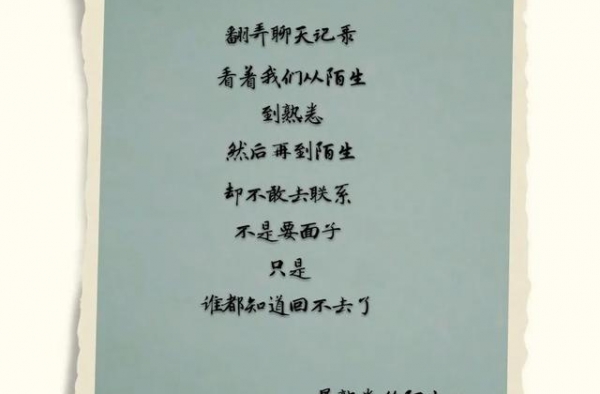 翻弄聊天记录
看着我们从陌生
到熟悉
然后再到陌生
却不敢去联系
不是要面子
只是
谁都知道回不去了